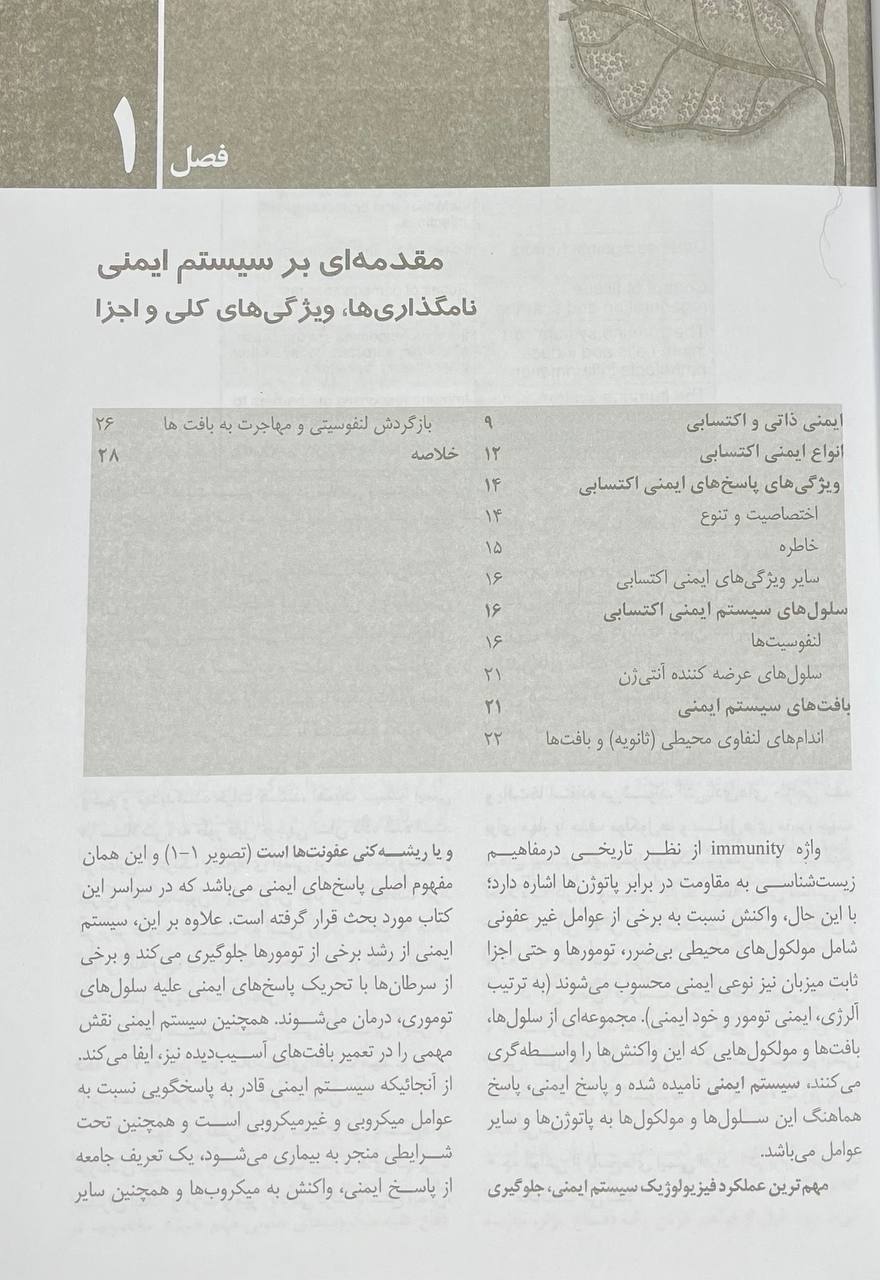 فصل ۱
مقدمه‌ای بر سیستم ایمنی
نامگذاری‌ها، ویژگی‌های کلی و اجزا
ایمنی ذاتی و اکتسابی ۹
انواع ایمنی اکتسابی ۱۲
ویژگی‌های پاسخ‌های ایمنی اکتسابی ۱۴
اختصاصیت و تنوع ۱۴
خاطره ۱۵
سایر ویژگی‌های ایمنی اکتسابی ۱۶
سلول‌های سیستم ایمنی اکتسابی ۱۶
لنفوسیت‌ها ۱۶
سلول‌های عرضه کننده آنتی‌ژن ۲۱
بافت‌های سیستم ایمنی ۲۱
اندام‌های لنفاوی محیطی (ثانویه) و بافت‌ها ۲۲
بازگردش لنفوسیتی و مهاجرت به بافت ها ۲۶
خلاصه ۲۸
واژه immunity از نظر تاریخی درمفاهیم
زیست‌شناسی به مقاومت در برابر پاتوژن‌ها اشاره دارد؛
با این حال، واکنش نسبت به برخی از عوامل غیر عفونی
شامل مولکول‌های محیطی بی‌ضرر، تومورها و حتی اجزا
ثابت میزبان نیز نوعی ایمنی محسوب می‌شوند (به ترتیب
آلرژی، ایمنی تومور و خود ایمنی). مجموعه‌ای از سلول‌ها،
بافت‌ها و مولکول‌هایی که این واکنش‌ها را واسطه‌گری
می‌کنند، سیستم ایمنی نامیده شده و پاسخ ایمنی، پاسخ
هماهنگ این سلول‌ها و مولکول‌ها به پاتوژن‌ها و سایر
عوامل می‌باشد.
مهم‌ترین عملکرد فیزیولوژیک سیستم ایمنی، جلوگیری
و یا ریشه‌کنی عفونت‌ها است (تصویر ۱-۱) و این همان
مفهوم اصلی پاسخ‌های ایمنی می‌باشد که در سراسر این
کتاب مورد بحث قرار گرفته است. علاوه بر این، سیستم
ایمنی از رشد برخی از تومورها جلوگیری می‌کند و برخی
از سرطان‌ها با تحریک پاسخ‌های ایمنی علیه سلول‌های
توموری، درمان می‌شوند. همچنین سیستم ایمنی نقش
مهمی را در تعمیر بافت‌های آسیب‌دیده نیز، ایفا می‌کند.
از آنجائیکه سیستم ایمنی قادر به پاسخگویی نسبت به
عوامل میکروبی و غیرمیکروبی است و همچنین تحت
شرایطی منجر به بیماری می‌شود، یک تعریف جامعه
از پاسخ ایمنی، واکنش به میکروب‌ها و همچنین سایر